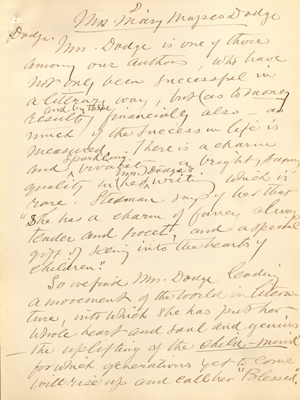 Mrs. Mary Mapes Dodge
Dodge.
Mrs. Dodge is one of those
among our authors, who have
not only been successful in
a literary way, but (as to money
and by those
results) financially also – as
much of the success in life is
measured. There is a charm
sparkling
and a bright,
Mrs. Dodge's
quality in her writing which is
rare. Stedman says of her that
"She has a charm of fancy, always
tender and sweet, and a special
gift of seeing into the hearts of
children."
So we find Mrs. Dodge leading
a movement of the world in litera-
ture, into which she has put her
whole heart and soul and genius
– the uplifting of the child-mind
for which generations yet to come
will rise up and call her "Blessed."